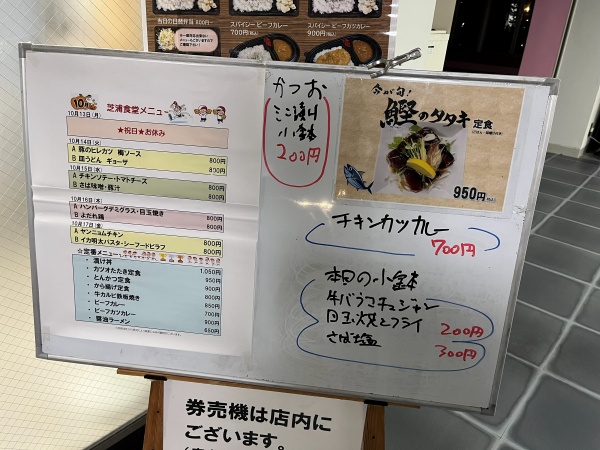 当日の日替弁当 800円～
スパイシー ビーフカレー
700円(税込)
スパイシー ビーフカツカレー
900円(税込)
10月
芝浦食堂メニュー
10月13日(月)
★祝日★お休み
10月14日(火)
A 豚のヒレカツ 梅ソース 800円
B 皿うどん ギョーザ 800円
10月15日(水)
A チキンソテー・トマトチーズ 800円
B さば味噌・豚汁 800円
10月16日(木)
A ハンバーグデミグラス・目玉焼き 800円
B よだれ鶏 800円
10月17日(金)
A ヤンニョムチキン 800円
B イカ明太パスタ・シーフードピラフ 800円
☆定番メニュー
・漬け丼
・カツオたたき定食 1,050円
・とんかつ定食 950円
・から揚げ定食 900円
・牛カルビ鉄板焼き 800円
・ビーフカレー 850円
・ビーフカツカレー 700円
・醤油ラーメン 900円
650円
かつお
ミニ漬け
小鉢
200円
今が旬!
鰹のタタキ定食
950円(税込)
チキンカツカレー
700円
本日の小鉢
牛バラコチュジャン
目玉焼とフライ
200円
さば塩
300円
券売機は店内に
ございます。